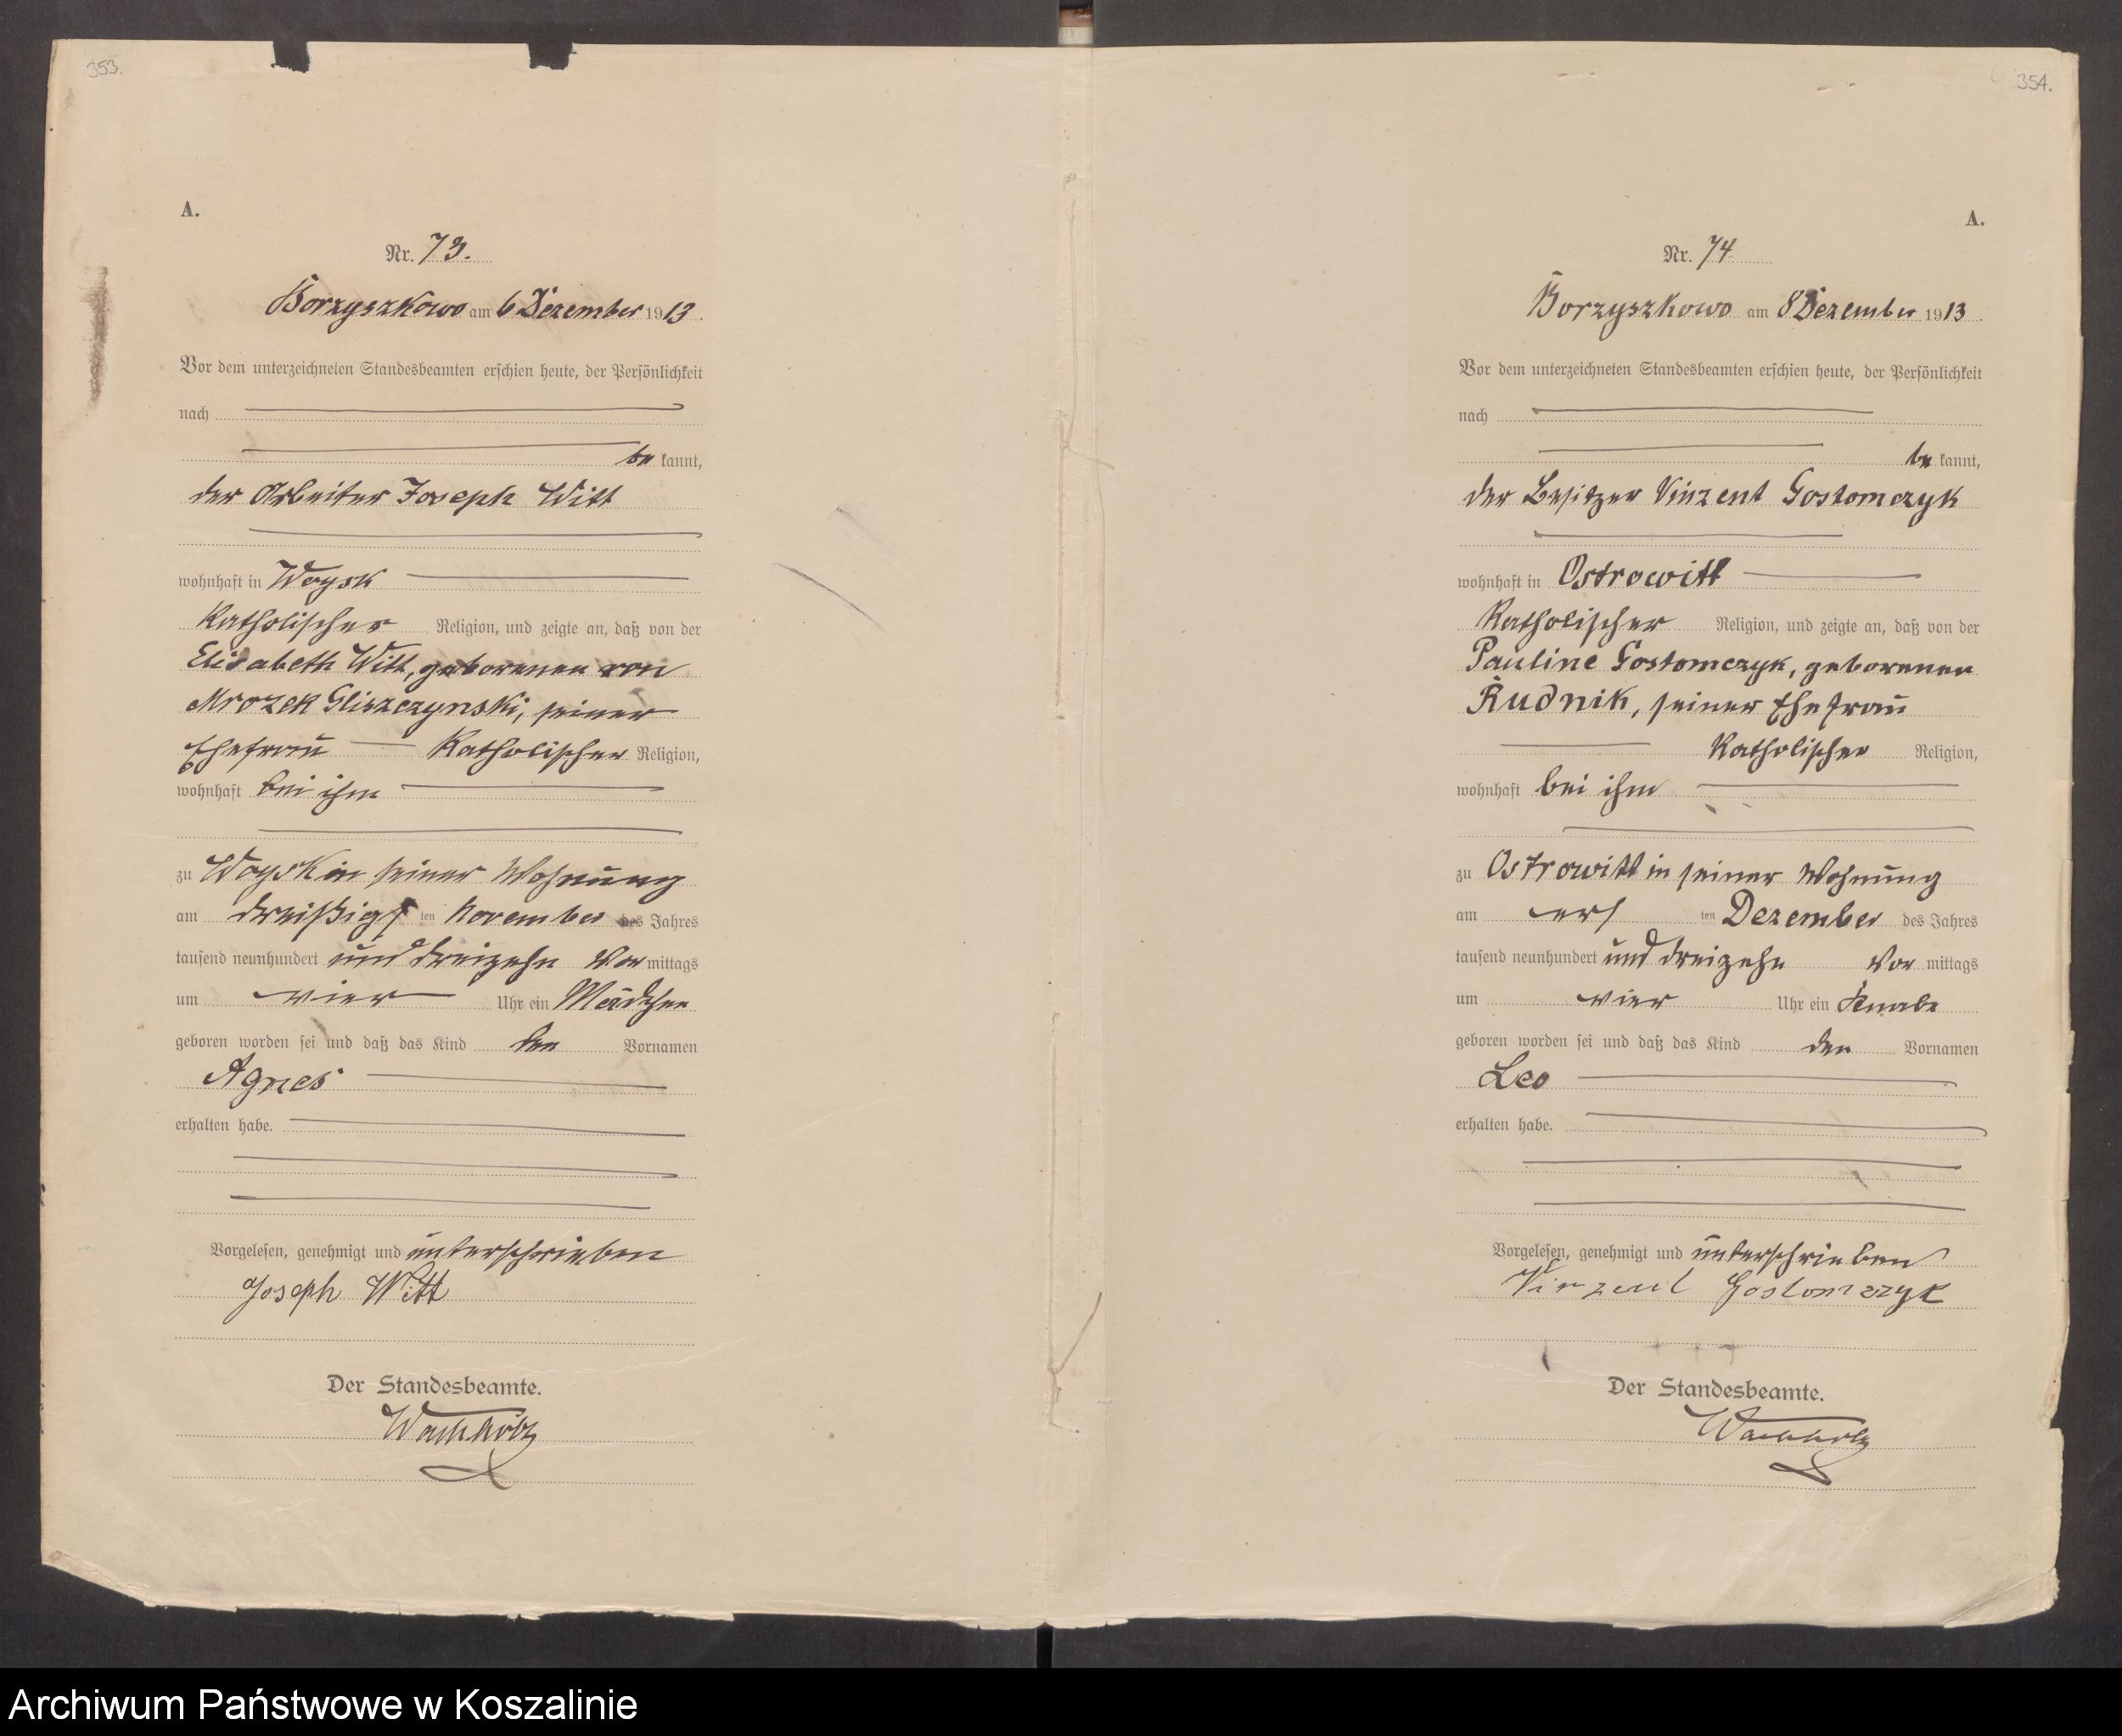 353.
A.
Nr. 73.
Borzyszkowo am 6 Dezember 1913.
Vor dem unterzeichneten Standesbeamten erschien heute, der Persönlichkeit
nach
be kannt,
der Arbeiter Joseph Witt
wohnhaft in Woysk
Katholischer Religion, und zeigte an, daß von der
Elisabeth Witt, geborenen von
Mrozek Gliszczynski, seiner
Ehefrau Katholischer Religion,
wohnhaft bei ihm
zu Woysk in seiner Wohnung
am dreißigs ten November des Jahres
tausend neunhundert und dreizehn Vor mittags
um vier Uhr ein Mädchen
geboren worden sei und daß das Kind den Vornamen
Agnes
erhalten habe.
Vorgelesen, genehmigt und unterschrieben
Joseph Witt
Der Standesbeamte.
Wachholz
354.
A.
Nr. 74
Borzyszkowo am 8 Dezember 1913.
Vor dem unterzeichneten Standesbeamten erschien heute, der Persönlichkeit
nach
be kannt,
der Besitzer Vinzent Gostomczyk
wohnhaft in Ostrowitt
Katholischer Religion, und zeigte an, daß von der
Pauline Gostomczyk, geborenen
Rudnik, seiner Ehefrau
Katholischer Religion,
wohnhaft bei ihm
zu Ostrowitt in seiner Wohnung
am ers ten Dezember des Jahres
tausend neunhundert und dreizehn Vor mittags
um vier Uhr ein Knabe
geboren worden sei und daß das Kind den Vornamen
Leo
erhalten habe.
Vorgelesen, genehmigt und unterschrieben
Vinzent Gostomczyk
Der Standesbeamte.
Wachholz
Archiwum Państwowe w Koszalinie